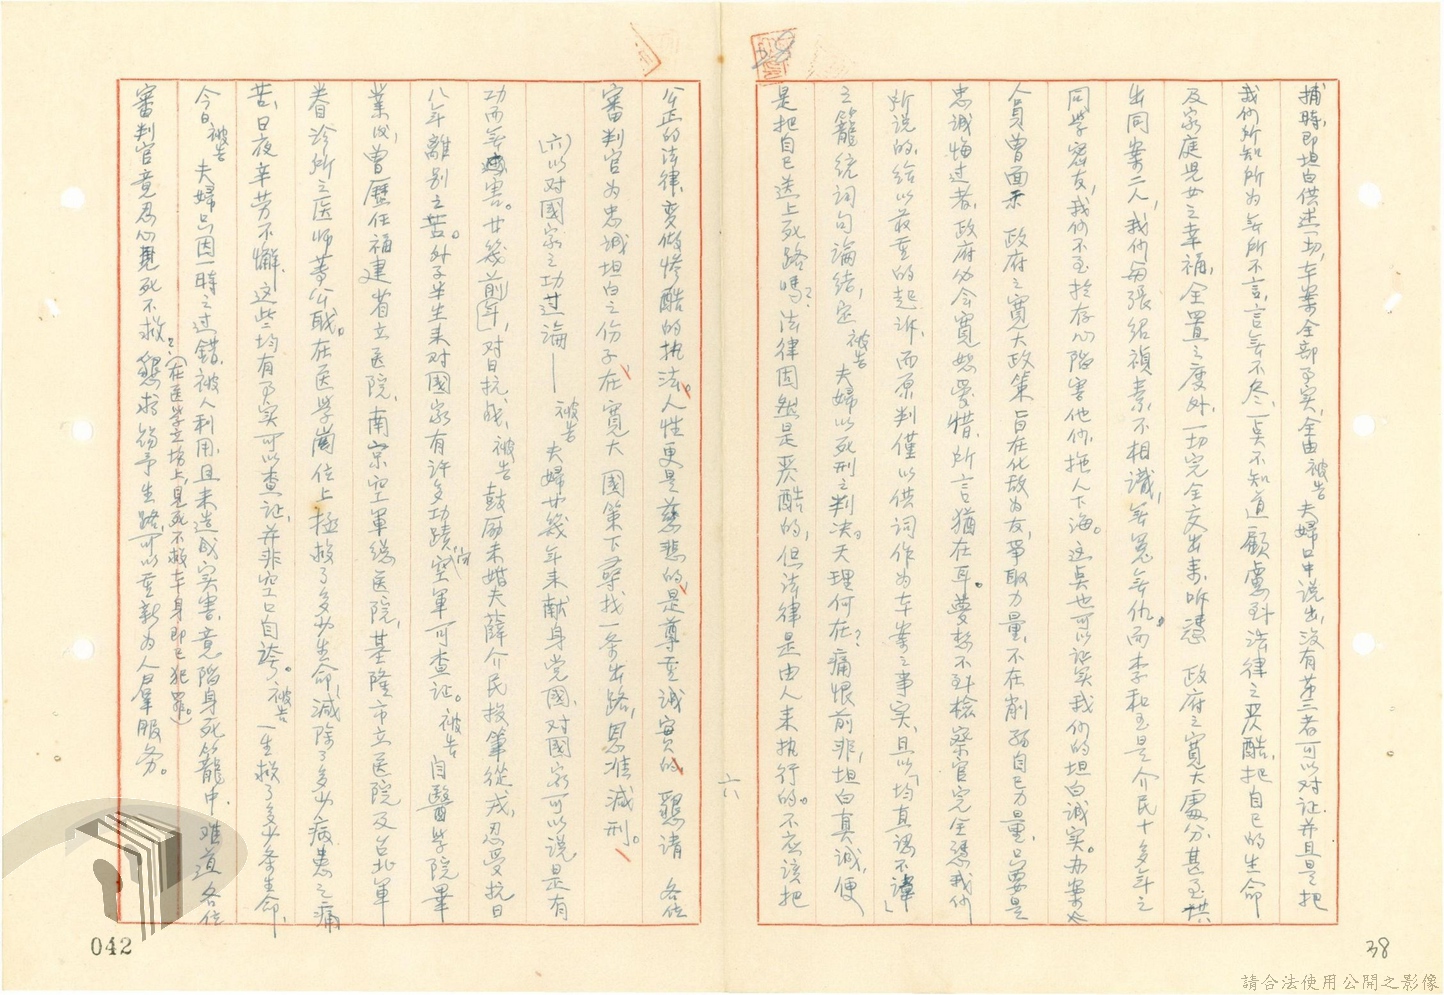 捕時,即坦白供述一切,本案全部事实,全由被告夫婦口中說出,沒有第三者可以对証.并且是把
我们所知所为無所不言,言無不尽,一点不知道顧慮到法律之严酷,把自己的生命
及家庭児女之幸福,全置之度外,一切完全交出来.听憑 政府之寬大處分.甚至供
出同案二人,我们与張紹禎素不相識,無冤無仇。而李和玉是介民十多年之
同学密友,我们不至於存心陷害他们,拖人下海。这点也可以証实我们的坦白誠实。办案
人員曾面示 政府之寬大政策旨在化敌为友,爭取力量,不在削弱自己力量,只要是
忠誠悔过者,政府必会寬恕愛惜,所言猶在耳。夢想不到檢察官完全憑我们
所說的,給以最重的起訴,而原判僅以供詞作为本案之事实,且以「均直認不諱」
之籠統詞句論結,定被告夫婦以死刑之判决。天理何在?痛恨前非,坦白真誠,便
是把自己送上死路嗎?法律固然是严酷的,但法律是由人来执行的。不应該把
六
公正的法律,变做惨酷的执法。人性更是慈悲的是尊重誠实的,懇請 各位
審判官为忠誠坦白之份子在寬大國策下尋找一条出路,恩准減刑。
(六)以对國家之功过論——被告夫婦廿幾年来献身党國,对國家可以說是有
功而無害。廿幾年前,对日抗战,被告鼓励未婚夫薛介民投筆從戎,忍受抗日
八年離別之苦。外子半生来对國家有许多功蹟,空軍可查証。被告自醫学院畢
業後,曾歷任福建省立医院,南京空軍總医院,基隆市立医院及台北軍
眷診所之医师等公职。在医学崗位上拯救了多少生命,減除了多少病患之痛
苦,日夜辛劳不懈,这些均有事实可以查証,并非空口自誇。被告一生救了多少条生命,
今日被告夫婦只因一時之过錯,被人利用,且未造成实害,竟陷身死籠中,难道各位
審判官竟忍心見死不救?(在医学立場上,見死不救本身即已犯罪。)懇求賜予生路,可以重新为人羣服务。
042
38
請合法使用公開之影像